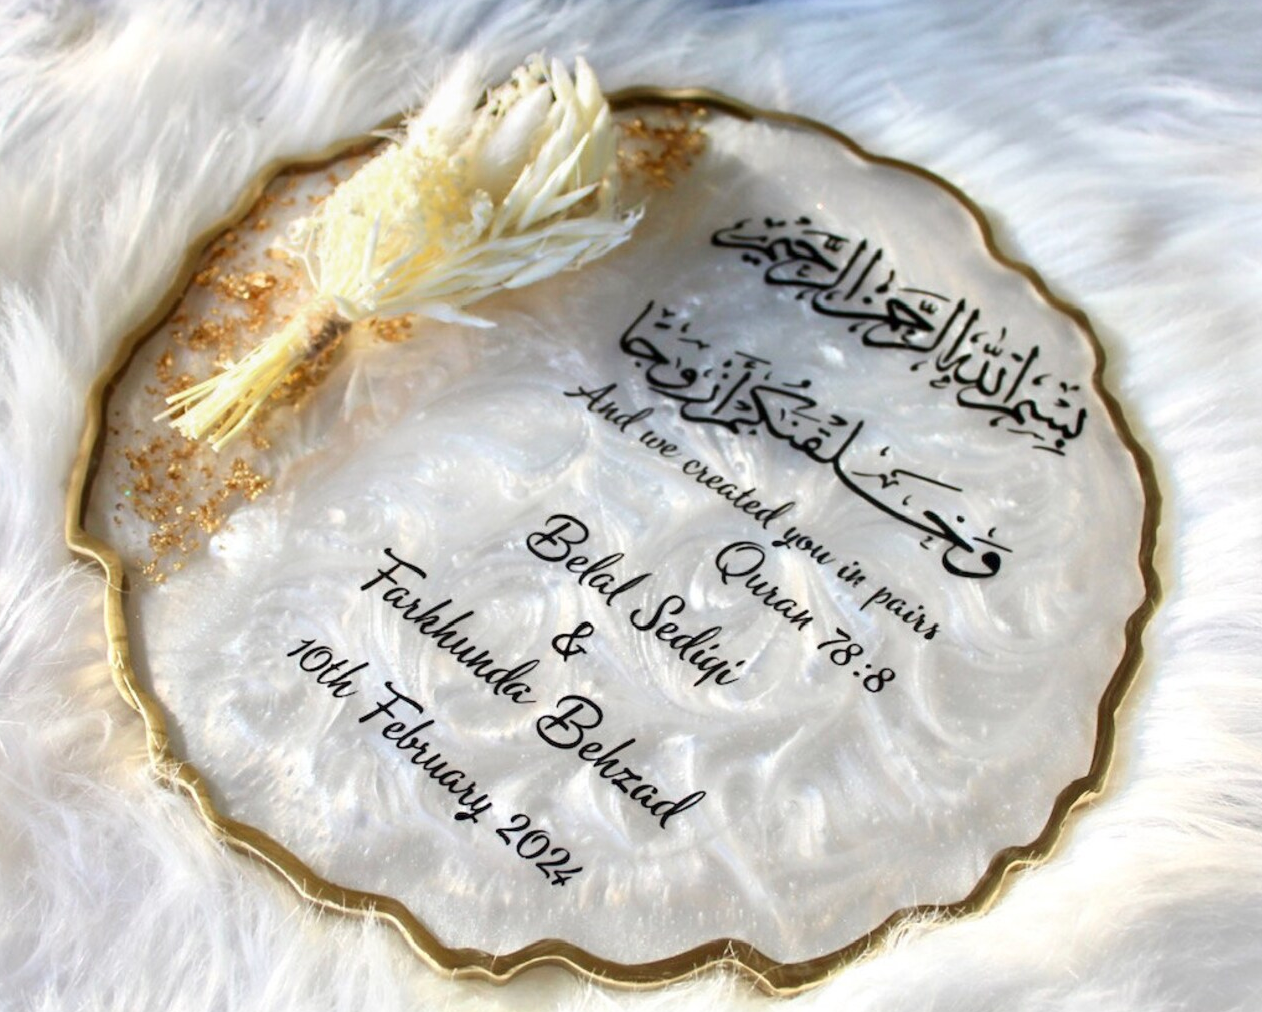 بِسْمِ اللَّهِ الرَّحْمَٰنِ الرَّحِيمِ
وَخَلَقْنَٰكُمْ أَزْوَٰجًا
And we created you in pairs
Quran 78:8
Belal Sediqi
&
Farkhunda Behzad
10th February 2024